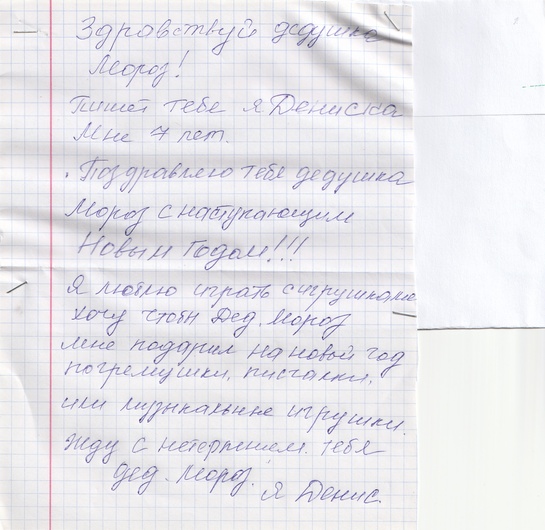 Здравствуй дедушка
Мороз!
Пишет тебе я Дениска
Мне 7 лет.
Поздравляю тебя дедушка
Мороз с наступающим
Новым Годом!!!
Я люблю играть с игрушками
хочу чтобы Дед. Мороз
мне подарил на новый год
погремушки, пищалки,
или музыкальные игрушки.
Жду с нетерпением тебя
Дед. Мороз.
Я Денис.